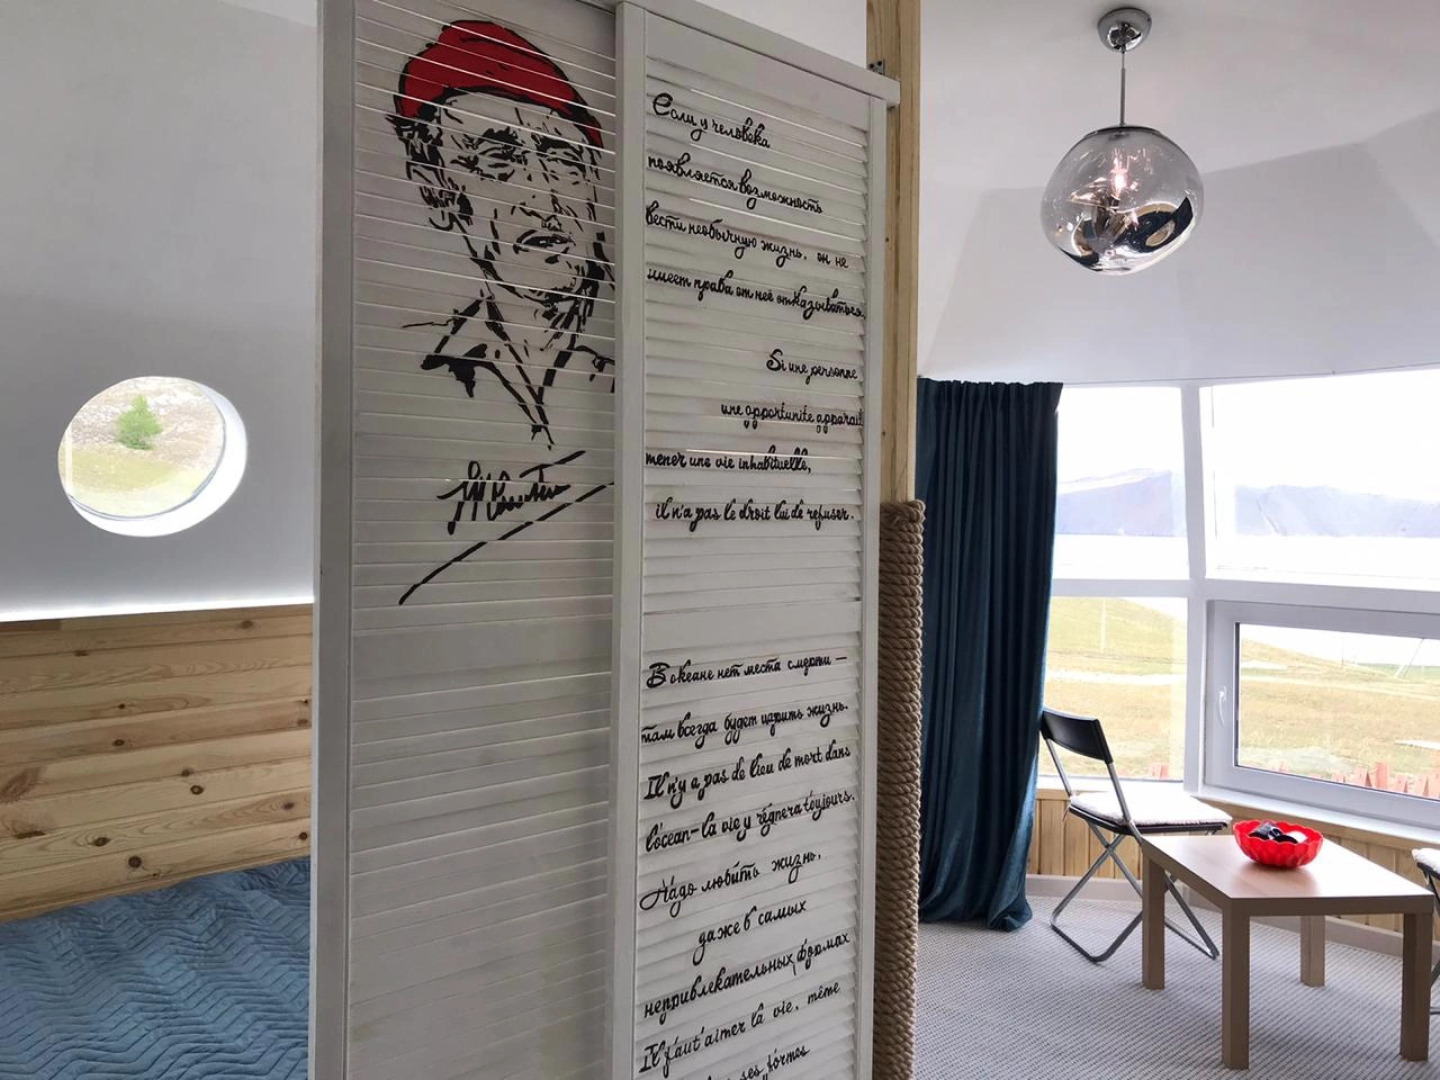 Если у человека
появляется возможность
вести необычную жизнь, он не
имеет права от неё отказываться.
Si une personne
une opportunite apparaît
mener une vie inhabituelle,
il n'a pas le droit lui de refuser.
В океане нет места смерти —
там всегда будет царить жизнь.
Il n'y a pas de lieu de mort dans
l'océan-la vie y régnera toujours.
Надо любить жизнь,
даже в самых
непривлекательных формах
Il faut aimer la vie, même
ses formes